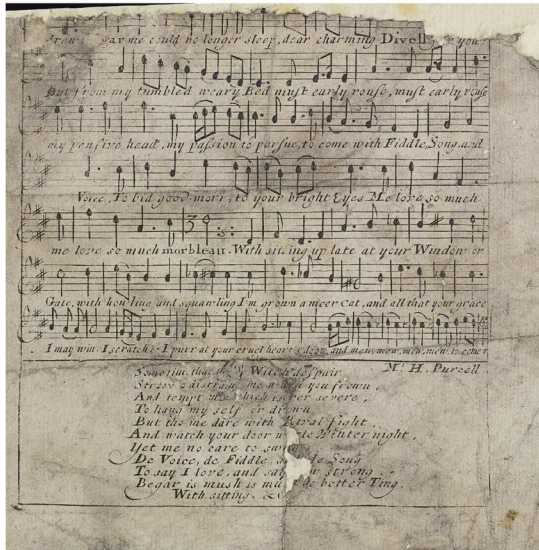 me could no longer sleep, dear charming Divell, you
But from my tumbled weary Bed must early rouse, must early rouse
my pensive head, my passion to pursue, to come with Fiddle, Song, and
Voice, To bid good morr, to your bright Eyes. Me love so much
me love so much morbleau. With sitting up late at your Window or
Gate, with howling and squawling I'm grown a meer Cat, and all that your grace
I may win. I scratch & I purr at your cruel heart's door, and mew, mew, mew, mew,
Mr. H. Purcell
Sometime that With despair
me you frown,
And tempt me which is severe,
To hang my self or drown
But tho me dare with Raval fight,
And watch your door Winter night,
Yet me no care to
De Voice, de Fiddle, Song
To say I love, and strong
Begar is mush is better Ting.
With sitting. &c